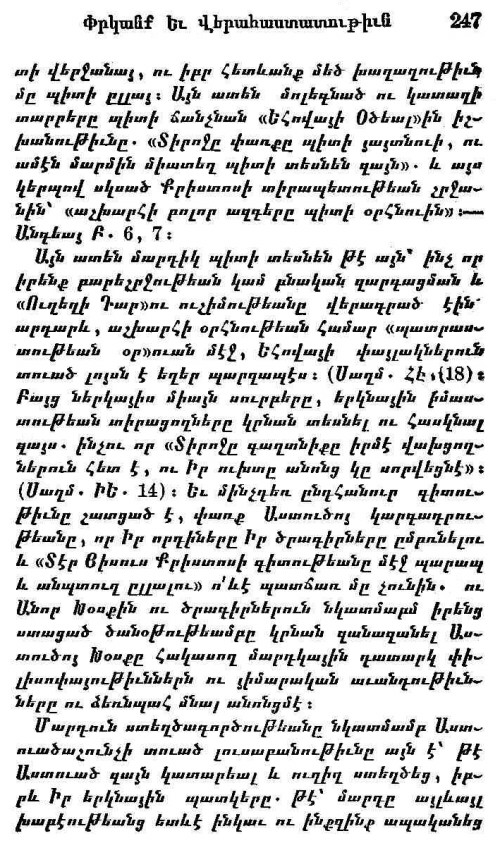 Փրկանք Եւ Վերահաստատութիւն 247
տի վերջանայ, ու իբր հետևանք մեծ խաղաղութիւն
մը պիտի ըլլայ։ Այն ատեն մոլեգնած ու կատաղի
տարրերը պիտի ճանչնան «Եհովայի Օծեալ»ին իշ-
խանութիւնը. «Տիրոջը փառքը պիտի յայտնուի, ու
ամէն մարմին միատեղ պիտի տեսնեն զայն». և այս
կերպով սկսած Քրիստոսի տիրապետութեան շրջա-
նին՝ «աշխարհի բոլոր ազգերը պիտի օրհնուին»։—
Անգեայ Բ. 6, 7։
Այն ատեն մարդիկ պիտի տեսնեն թէ այն՝ ինչ որ
իրենք բարեշրջութեան կամ բնական զարգացման և
«Ուղեղի Դար»ու ուշիմութեանը վերագրած էին՝
արդարև, աշխարհի օրհնութեան համար «պատրաս-
տութեան օր»ուան մէջ, Եհովայի փայլակներուն
տուած լոյսն է եղեր պարզապէս։ (Սաղմ. ՀԻ, 18)։
Բայց ներկայիս միայն սուրբերը, երկնային իմաս-
տութեան տիրացողները կրնան տեսնել ու հասկնալ
զայս. ինչու որ «Տիրոջը գաղտնիքը իրմէ վախցող-
ներուն հետ է, ու Իր ուխտը անոնց կը սորվեցնէ»։
(Սաղմ. ԻԵ. 14)։ Եւ մինչդեռ ընդհանուր գիտու-
թիւնը շատցած է, փառք Աստուծոյ կարգադրու-
թեանը, որ Իր որդիները Իր ծրագիրները ըմբռնելու
և «Տէր Յիսուս Քրիստոսի գիտութեանը մէջ պարապ
և անպտուղ ըլլալու» ո՛ևէ պատճառ մը չունին. ու
Անոր Խօսքին ու ծրագիրներուն նկատմամբ իրենց
ստացած ծանօթութեամբը կրնան զանազանել Աս-
տուծոյ Խօսքը հակասող մարդկային դատարկ փի-
լիսոփայութիւններն ու յիմարական աւանդութիւն-
ները ու ձեռնպահ մնալ անոնցմէ։
Մարդուն ստեղծագործութեանը նկատմամբ Աստ-
ուածաշունչի տուած լուսաբանութիւնը այն է՝ թէ
Աստուած զայն կատարեալ և ուղիղ ստեղծեց, իբ-
րև Իր երկնային պատկերը. թէ՝ մարդը այլևայլ
խաբէութեանց ետևէ ինկաւ ու ինքզինք ապականեց